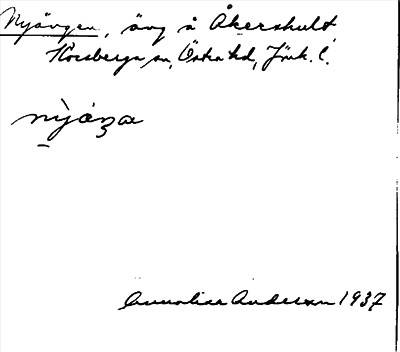 Nyängen, äng å Åkershult
Korsberga sn, Östra hd, Jönk. l.
nỳáŋa
Annalisa Anderson 1937